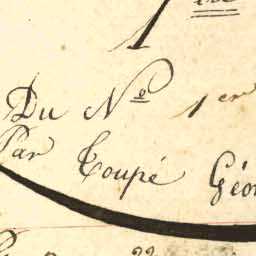 Du N.º 1er
Par Coupé Géo